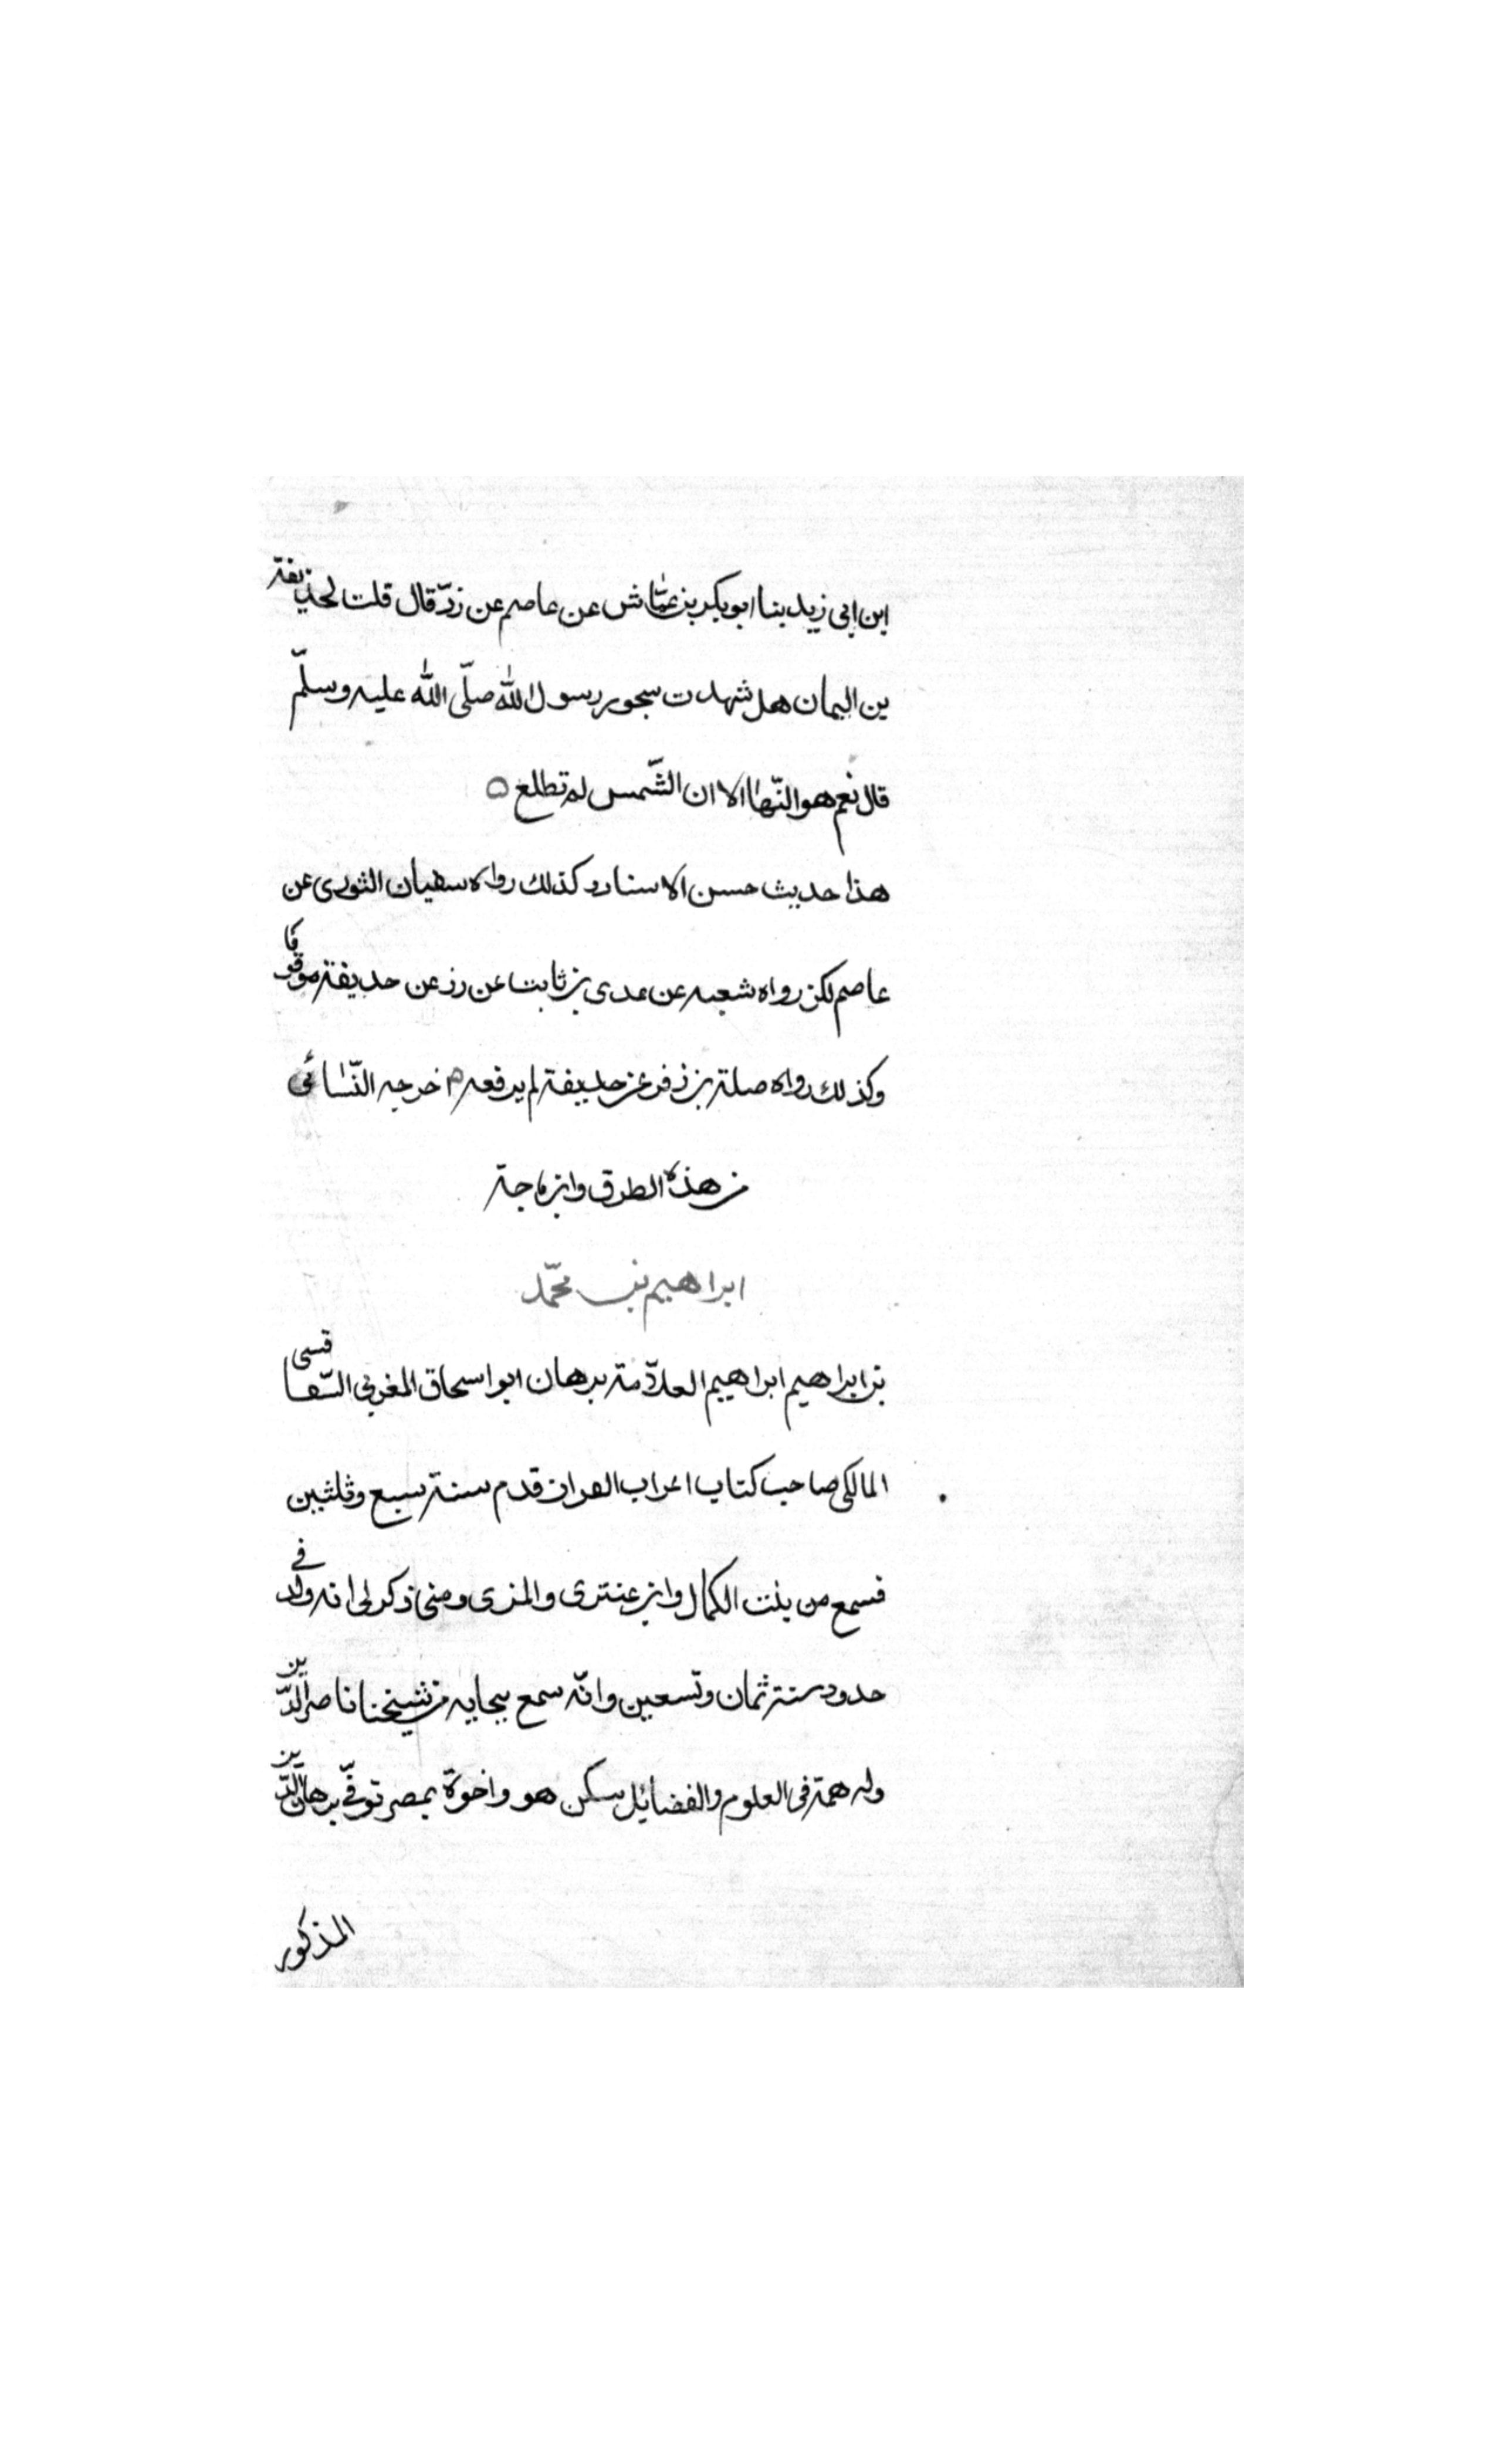 ابن ابى زيد بنا ابو بكر بن عيّاش عن عاصم عن زرّ قال قلت لحذيفة
بن اليمان هل شهدت سحور رسول الله صلّى الله عليه وسلّم
قال نعم هو النّهار الا ان الشّمس لم تطلع ه
هذا حديث حسن الاسناد وكذلك رواه سفيان الثورى عن
عاصم لكن رواه شعبه عن عدى بن ثابت عن رز عن حديفة موقوفا
وكذلك رواه صلة بن زفر عن حديفة لم يرفعه م اخرجه النّسائى
من هذه الطرق وابن ماجة
ابراهيم بن محمّد
بن ابراهيم ابراهيم العلاّمة برهان ابو اسحاق المغربى السّفاقسى
المالكى صاحب كتاب اعراب القران قدم سنة سبع وثلثين
فسمع من بنت الكمال وابن عنترى والمزى ومنى ذكر لى انه ولد فى
حدود سنة ثمان وتسعين وانّه سمع ببجايه من شيخنا ناصر الدّين
وله همّة فى العلوم والفضائل سكن هو واخوة بمصر توفّى برهان الدّين
المذكور